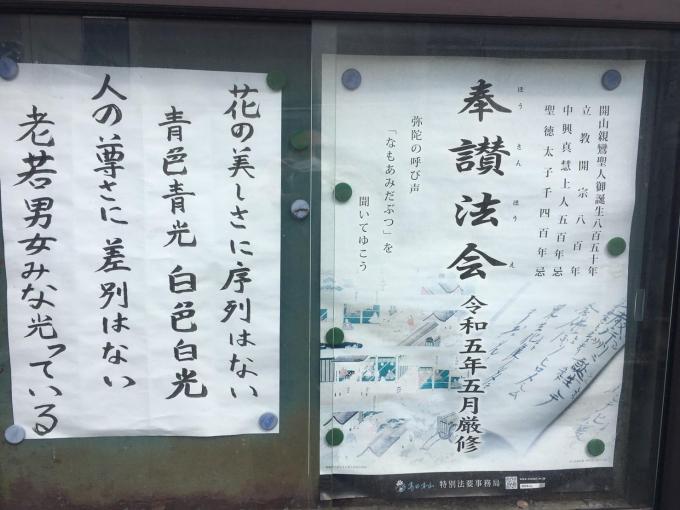 花の美しさに序列はない
青色青光 白色白光
人の尊さに差別はない
老若男女みな光っている
開山親鸞聖人御誕生八百五十年
立教開宗八百年
中興真慧上人五百年忌
聖徳太子千四百年忌
ほうさんほうえ
奉讃法会
令和五年五月厳修
弥陀の呼び声
「なもあみだぶつ」を
聞いてゆこう
特別法要事務局